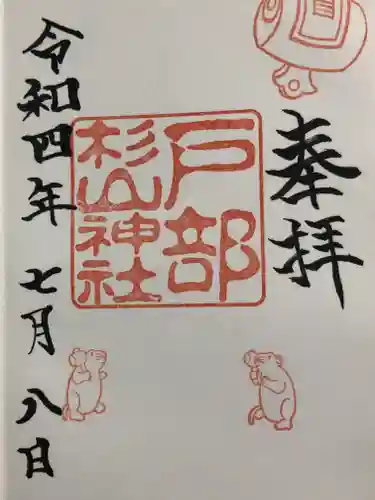 奉拝
戸部
杉山神社
令和四年 七月 八日